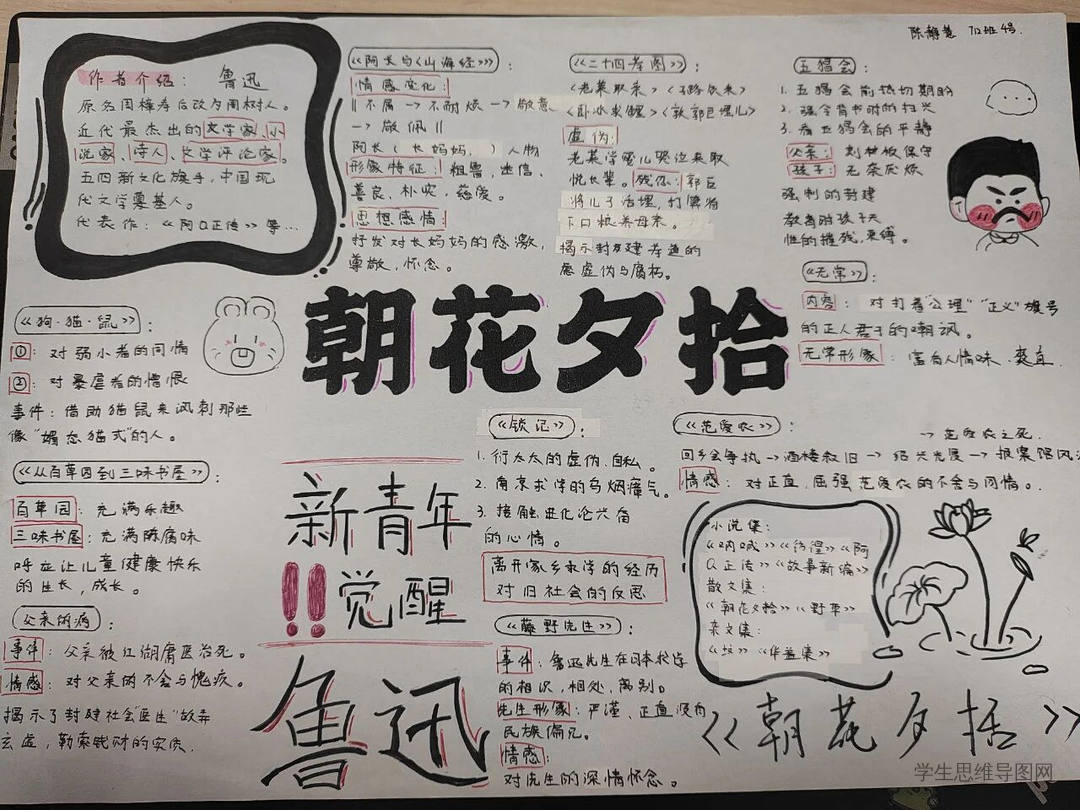 陈静慧 712班 4号.
作者介绍: 鲁迅
原名周樟寿后改为周树人。
近代最杰出的文学家、小
说家、诗人、文学评论家。
五四新文化旗手,中国现
代文学奠基人。
代表作:《阿Q正传》等...
《阿长与《山海经》》:
情感变化:
不屑→不耐烦→敬意
→敬佩
阿长(长妈妈,)人物
形象特征: 粗鲁、迷信、
善良、朴实、慈爱。
思想感情:
抒发对长妈妈的感激,
尊敬,怀念。
《二十四孝图》:
《老莱取乐》《子路负米》
《卧冰求鲤》《郭巨埋儿》
虚伪:
老莱学婴儿哭泣来取
悦长辈。残忍: 郭巨
将儿子活埋,打算省
下口粮养母亲。
揭示封建孝道的
虚伪与腐朽。
五猖会:
1. 五猖会前热切期盼
2. 强令背书时的扫兴
3. 看五猖会的平静
父亲: 刻板保守
孩子: 无奈厌烦
强制的封建
教育对孩子天
性的摧残,束缚。
《无常》:
内容: 对打着“公理”“正义”旗号
的正人君子的嘲讽。
无常形象: 富有人情味、爽直
朝花夕拾
《狗·猫·鼠》:
①: 对弱小者的同情
②: 对暴虐者的憎恨
事件: 借助猫鼠来讽刺那些
像“媚态猫式”的人。
《从百草园到三味书屋》:
百草园: 充满乐趣
三味书屋: 充满陈腐味
呼应让儿童健康快乐
的生长,成长。
父亲的病:
事件: 父亲被江湖庸医治死。
情感: 对父亲的不舍与愧疚。
揭示了封建社会“医生”故弄
玄虚,勒索钱财的实质.
新青年
!!觉醒
鲁迅
《锁记》:
1. 衍太太的虚伪、自私。
2. 南京求学的乌烟瘴气。
3. 接触进化论兴奋
的心情。
离开家乡求学的经历
对旧社会的反思
《藤野先生》:
事件: 鲁迅先生在日本求学
的相识,相处,离别。
先生形象: 严谨、正直没有
民族偏见。
情感:
对先生的深情怀念。
《范爱农》:
→范爱农之死.
回乡会争执→酒楼叙旧→绍兴光复→报案馆风波
情感: 对正直、倔强范爱农的不舍与同情。
小说集:
《呐喊》《彷徨》《阿
Q正传》《故事新编》
散文集:
《朝花夕拾》《野草》
杂文集:
《坟》《华盖集》
《朝花夕拾》
学生思维导图网